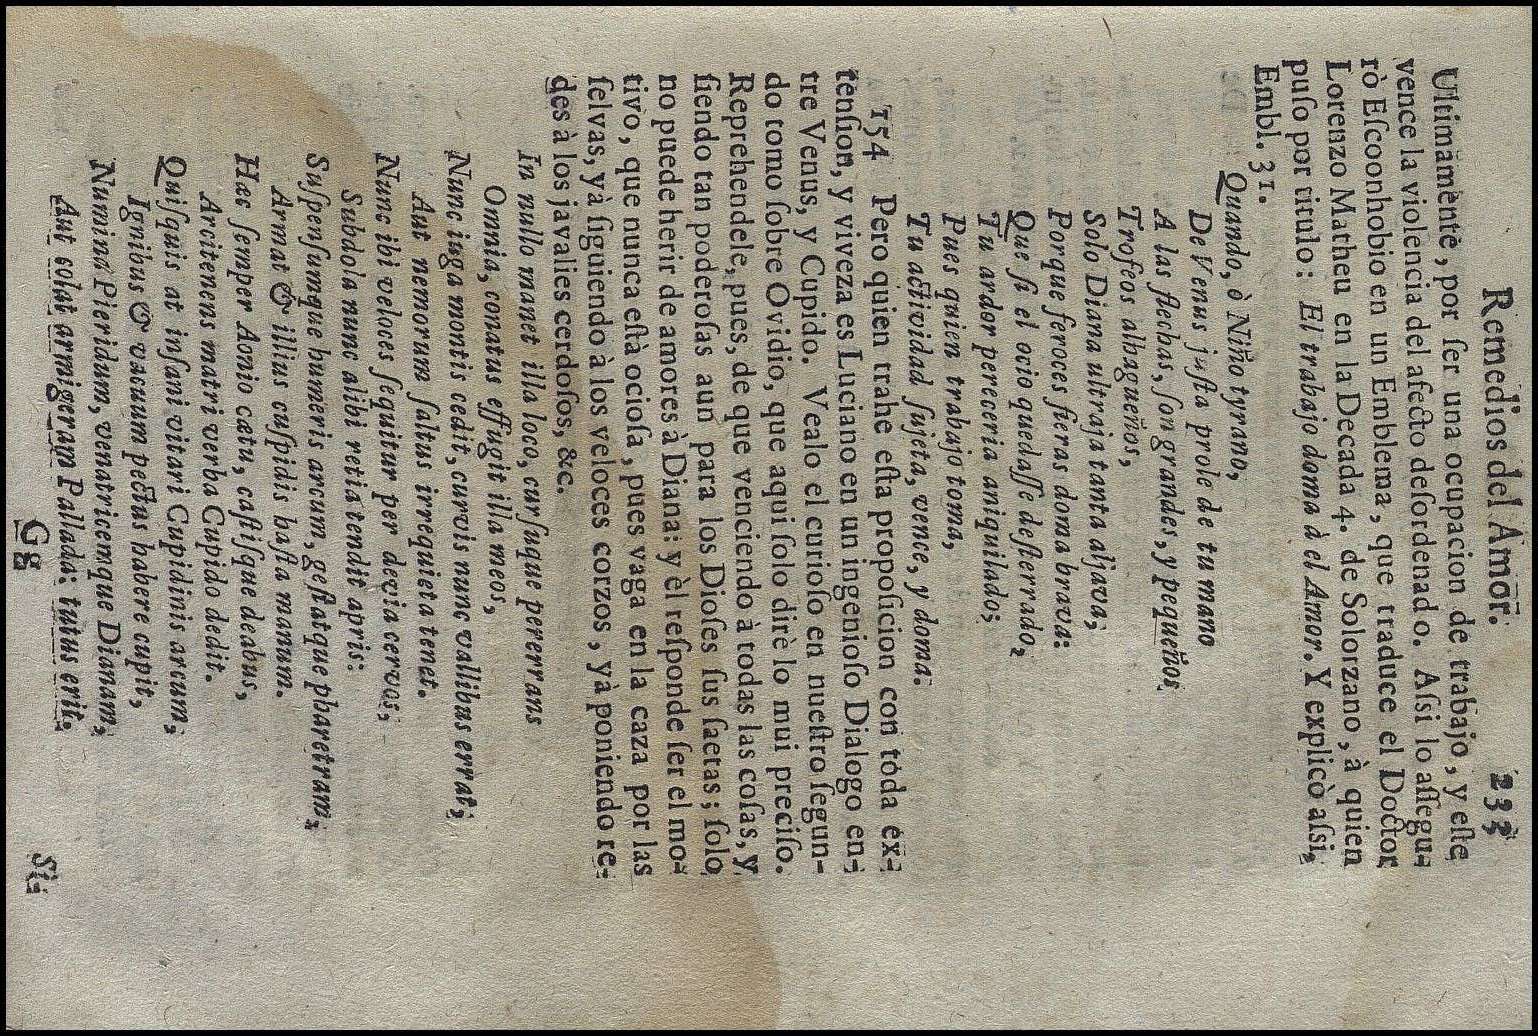 Remedios del Amor. 233
Ultimamente, por ſer una ocupacion de trabajo, y eſte
vence la violencia del afecto deſordenado. Aſsi lo aſſegu-
rò Eſcoonhobio en un Emblema, que traduce el Doctor
Lorenzo Matheu en la Decada 4. de Solorzano, à quien
puſo por titulo: El trabajo doma à el Amor. Y explicò aſsi,
Embl. 31.
Quando, ò Niño tyrano,
De Venus juſta prole de tu mano
A las flechas, ſon grandes, y pequeños
Trofeos albagueños,
Solo Diana ultraja tanta aljava;
Porque feroces fieras doma brava:
Que ſi el ocio quedaſſe deſterrado,
Tu ardor pereceria aniquilado;
Pues quien trabajo toma,
Tu actividad ſujeta, vence, y doma.
154 Pero quien trahe eſta propoſicion con toda ex-
tenſion, y viveza es Luciano en un ingenioſo Dialogo en-
tre Venus, y Cupido. Vealo el curioſo en nueſtro ſegun-
do tomo ſobre Ovidio, que aqui ſolo dirè lo mui preciſo.
Reprehendele, pues, de que venciendo à todas las coſas, y
ſiendo tan poderoſas aun para los Dioſes ſus ſaetas; ſolo
no puede herir de amores à Diana: y èl reſponde ſer el mo-
tivo, que nunca eſtà ocioſa, pues vaga en la caza por las
ſelvas, yà ſiguiendo à los veloces corzos, yà poniendo re-
des à los javalies cerdoſos, &c.
In nullo manet illa loco, curſuque pererrans
Omnia, conatus effugit illa meos,
Nunc iuga montis cedit, curvis nunc vallibus errat;
Aut nemorum ſaltus irrequieta tenet.
Nunc ibi veloces ſequitur per devia cervos;
Subdola nunc alibi retia tendit apris:
Suſpenſumque humeris arcum, geſtatque pharetram;
Armat & illius cuſpidis haſta manum.
Hæc ſemper Aonio cætu, caſtiſque deabus,
Arcitenens matri verba Cupido dedit.
Quiſquis at inſani vitari Cupidinis arcum,
Ignibus & vacuum pectus habere cupit,
Numina Pieridum, venatricemque Dianam,
Aut colat armigeram Pallada: tutus erit.
Gg Si-